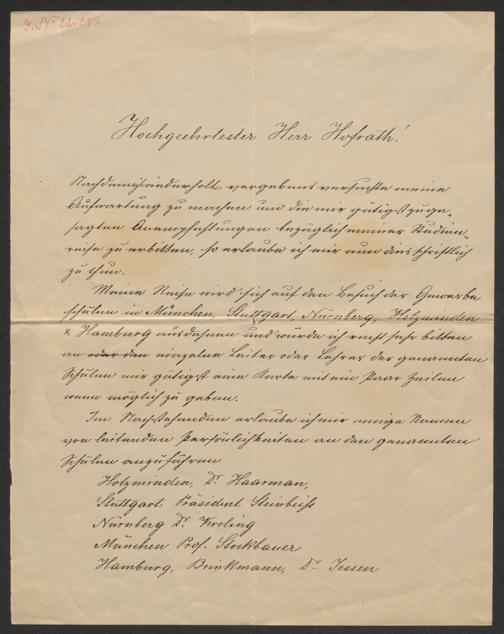 J. N. 22.245
Hochgeehrtester Herr Hofrath!
Nachdem ich wiederholt vergebens versuchte meine
Aufwartung zu machen um die mir gütigst zuge-
sagten Anempfehlungen bezüglich meiner Studien-
reise zu erbitten, so erlaube ich mir nun dies schriftlich
zu thun.
Meine Reise wird sich auf den Besuch der Gewerbe
schulen in München, Stuttgart, Nürnberg, Holzminden
& Hamburg ausdehnen und würde ich recht sehr bitten
an oder den einzelne Leiter oder Lehrer der genannten
Schulen mir gütigst eine Karte mit ein Paar Zeilen
wenn möglich zu geben.
Im Nachstehenden erlaube ich mir einige Namen
von leitenden Persönlichkeiten an den genannten
Schulen anzuführen
Holzminden, Dr. Haarman,
Stuttgart Präsident Steinbeiss
Nürnberg Dr. Kreling
München Prof. Stockbauer
Hamburg, Brinkmann, Dr. Jessen